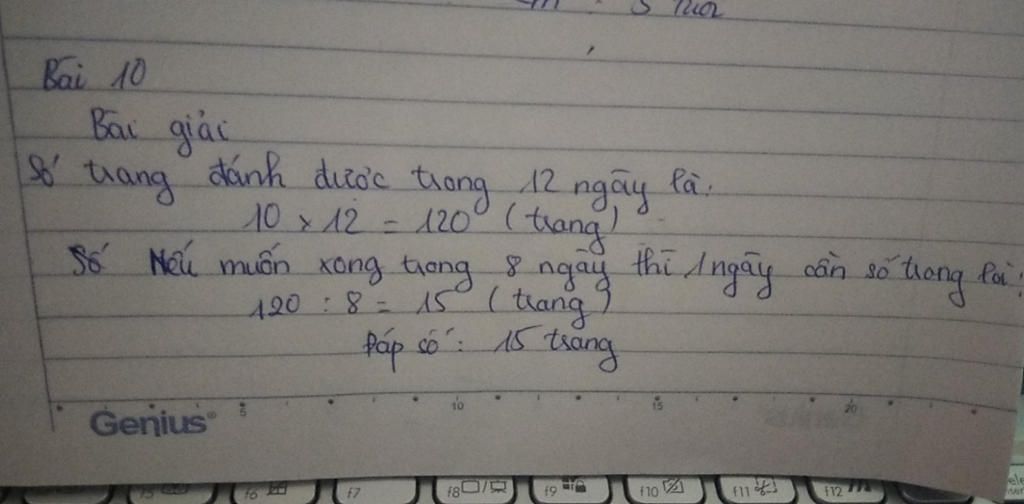 3 tuổi
Bài 10
Bài giải
Số trang đánh được trong 12 ngày là:
10 x 12 = 120 (trang)
Nếu muốn xong trong 8 ngày thì 1 ngày cần số trang là:
120 : 8 = 15 (trang)
Đáp số: 15 trang
5 10 15 20
Genius
f6 f7 f8 f9 f10 f11 f12